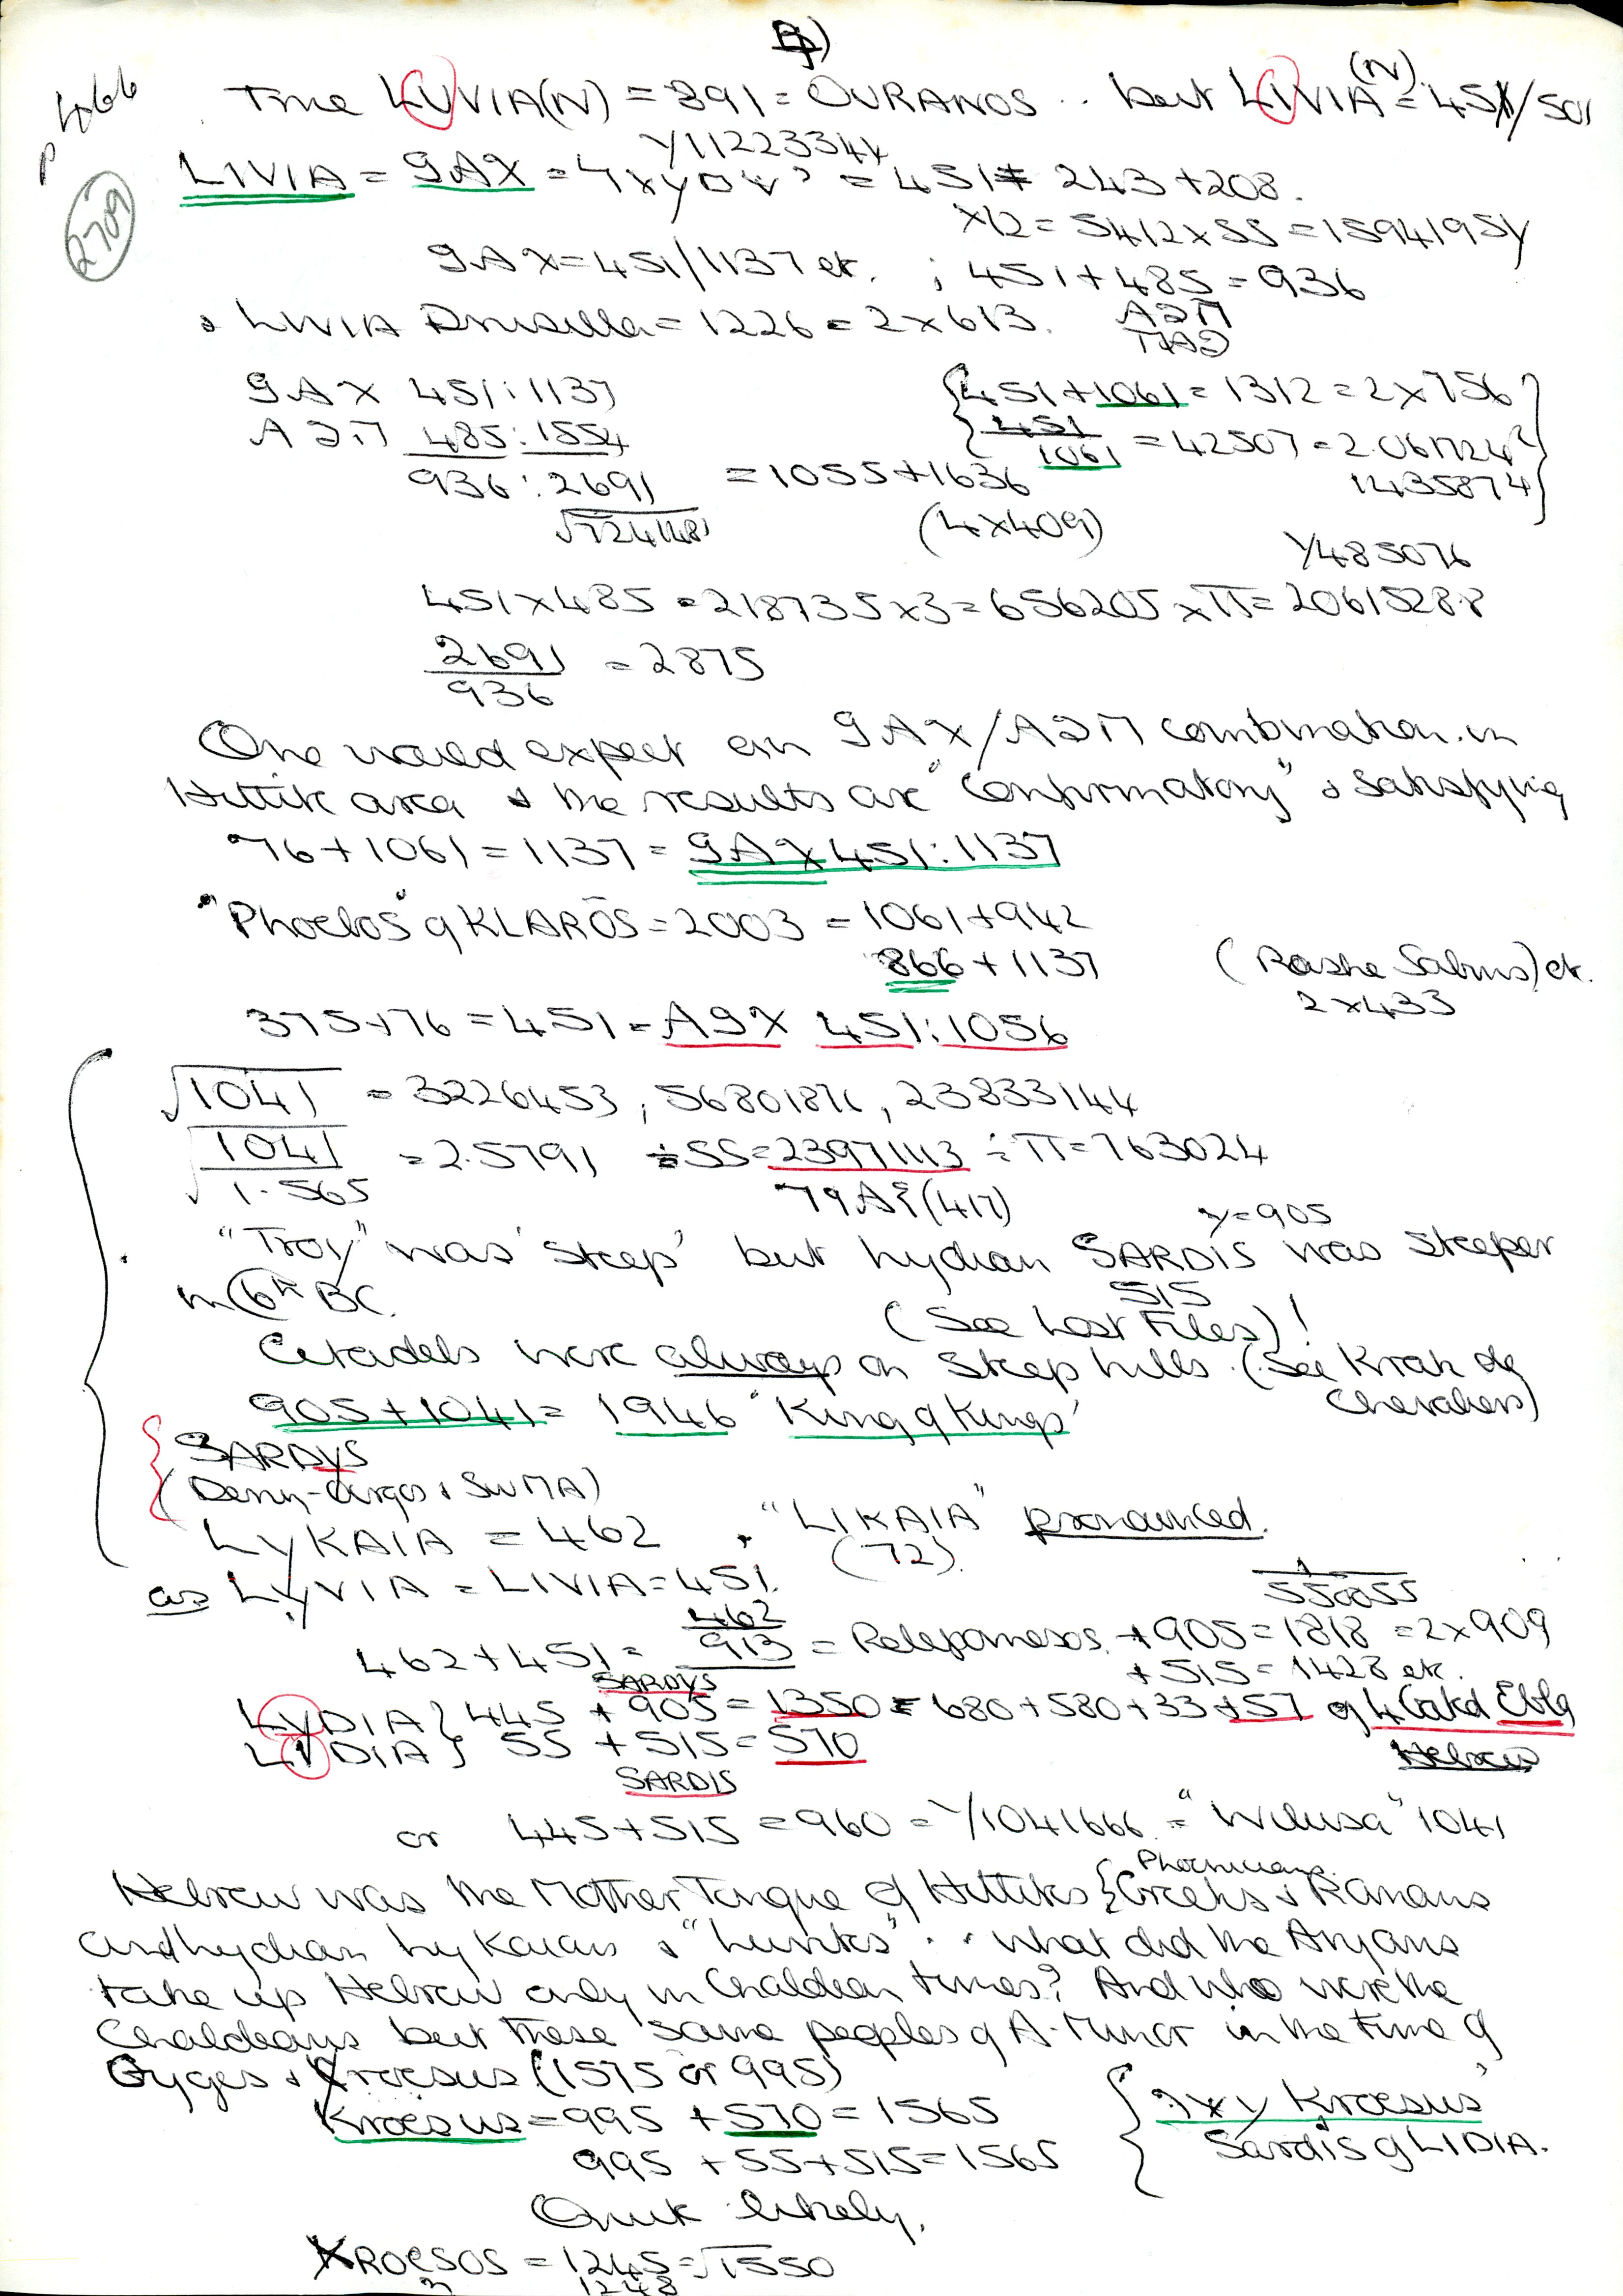 p 466
2709
True LUVIA(N) = 891 = OURANOS .. but LIVIA (N) = 451/501
Y11223344
LIVIA = 9AX = = 451 = 243 + 208.
X12 = 5412 x 55 = 15941951
9AX = 451/1137 et. ; 451 + 485 = 936
& LIVIA Drusilla = 1226 = 2 x 613.
9AX 451:1137
{451 + 1061 = 1312 = 2 x 756}
485:1554
451/1061 = 42507 = 2.061724²
936:2691 = 1055 + 1636
1435874
√7241481
(4x409)
Y485076
451 x 485 = 218735 x 3 = 656205 x π = 20615288
2691/936 = 2875
One would expect an combination in
Hittite area & the results are "Confirmatory" & Satisfying
76 + 1061 = 1137 = 9AX 451:1137
"Phoebos" of KLARŌS = 2003 = 1061 + 942
866 + 1137 (Rashe Sabins) et.
2x433
375 + 76 = 451 = A9X 451:1056
√1041 = 3226453, 56801876, 23833144
√1041/1.565 = 2.5791 ÷ 55 = 23971113 ÷ π = 763024
(417)
y = 905
"Troy" was 'Steep' but Lydian SARDIS was Steeper
515
in 6th BC.
(See Lost Files)!
Citadels were always on Steep hills. (See Krak de
Chevaliers)
905 + 1041 = 1946 'King of Kings'
SARDYS
LYKAIA = 462 . "LIKAIA" pronounced.
(72).
as LYVIA = LIVIA = 451.
1/550055
462
462 + 451 = 913 = Peleponnesos. + 905 = 1818 = 2 x 909
+ 515 = 1428 et.
SARDYS
LYDIA} 445 + 905 = 1350 = 680 + 580 + 33 + 57 of 4 Ebla
LIDIA} 55 + 515 = 570
Hebrew
SARDIS
or 445 + 515 = 960 = Y1041666. = "Wilusa" 1041
Phoenicians
Hebrew was the Mother Tongue of Hittites {Greeks & Romans
and Lydian Lykaians & "Luvites".. What did the Aryans
take up Hebrew only in Chaldean times? And who were the
Chaldeans but these same peoples of A. Minor in the time of
Gyges & Kroesus (1575 or 995)
Kroesus = 995 + 570 = 1565
Kroesus'
995 + 55 + 515 = 1565
Sardis of LIDIA.
Quite likely.
KROESOS = 1245 = √1550
1248